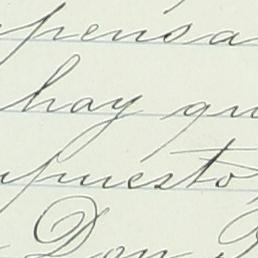 pensa
hay qu
puesto
Don